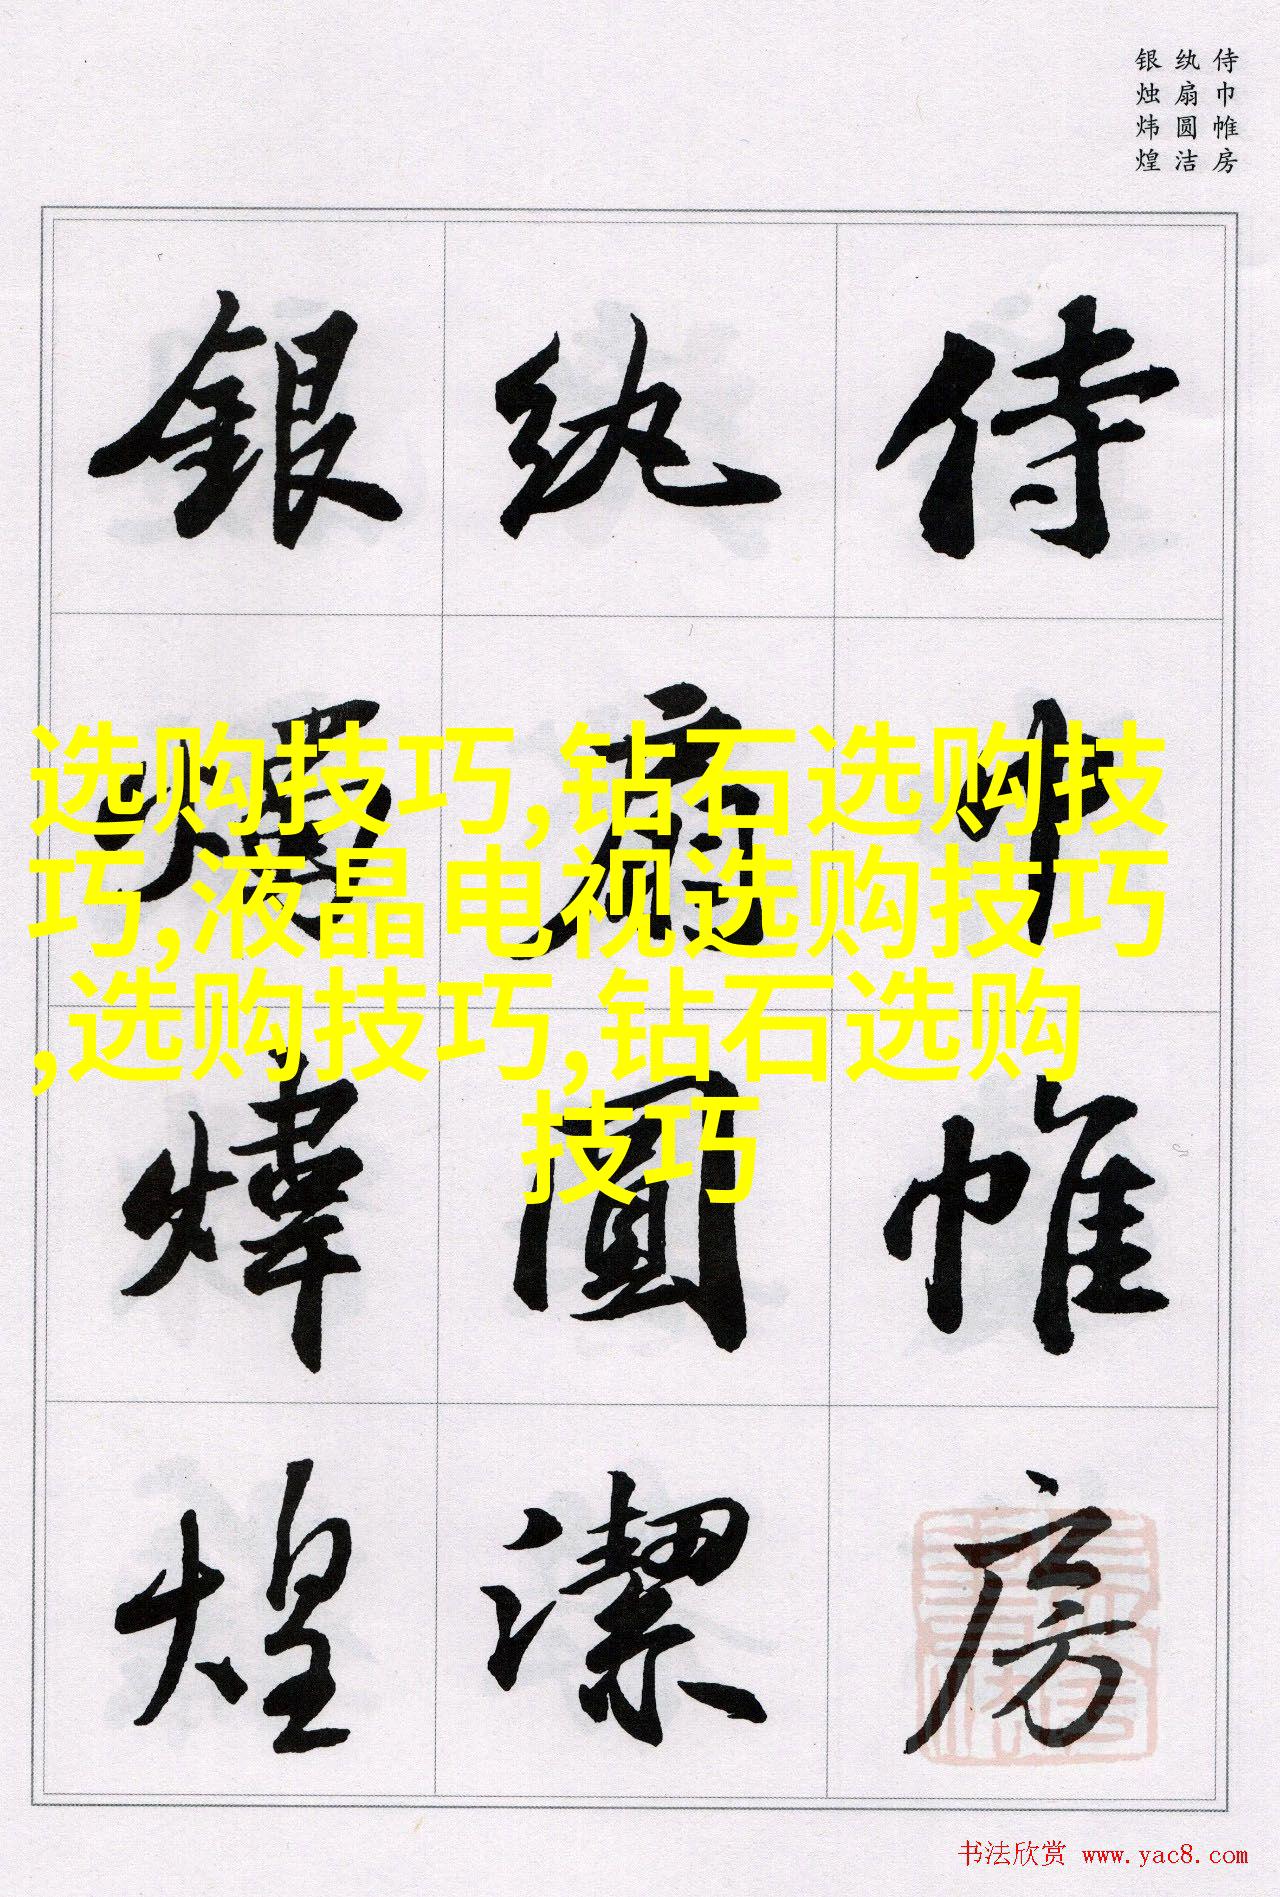 侍巾帷房
纨扇圆洁
银烛炜煌
侍巾帷房
纨扇圓潔
銀燭煒煌
选购技巧,钻石选购技
巧,液晶电视选购技巧
,选购技巧,钻石选购
技巧
书法欣赏 www.yac8.com